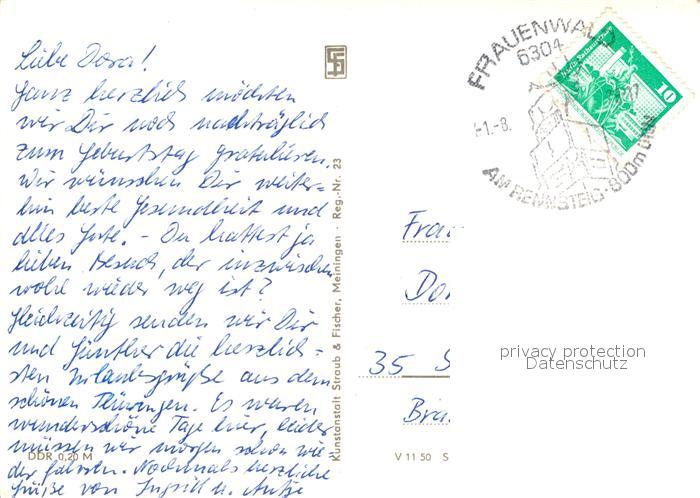 Liebe Dora!
Ganz herzlich möchten
wir Dir noch nachträglich
zum Geburtstag gratulieren.
Wir wünschen Dir weiter=
hin beste Gesundheit und
alles Gute. - Du hattest ja
lieben Besuch, der inzwischen
wohl wieder weg ist?
Gleichzeitig senden wir Dir
und Günther die herzlich=
sten Urlaubsgrüße aus dem
schönen Thüringen. Es waren
wunderschöne Tage hier, leider
müssen wir morgen schon wie
der fahren. Nochmals herzliche
Grüße von Ingrid u.
DDR 0,20 M
Kunstanstalt Straub & Fischer, Meiningen · Reg.-Nr. 23
FRAUENWALD
6304
-1.-8.
AM RENNSTEIG · 800m
10
Frau
Do
35 S
Bra
V 11 50 S
privacy protection
Datenschutz